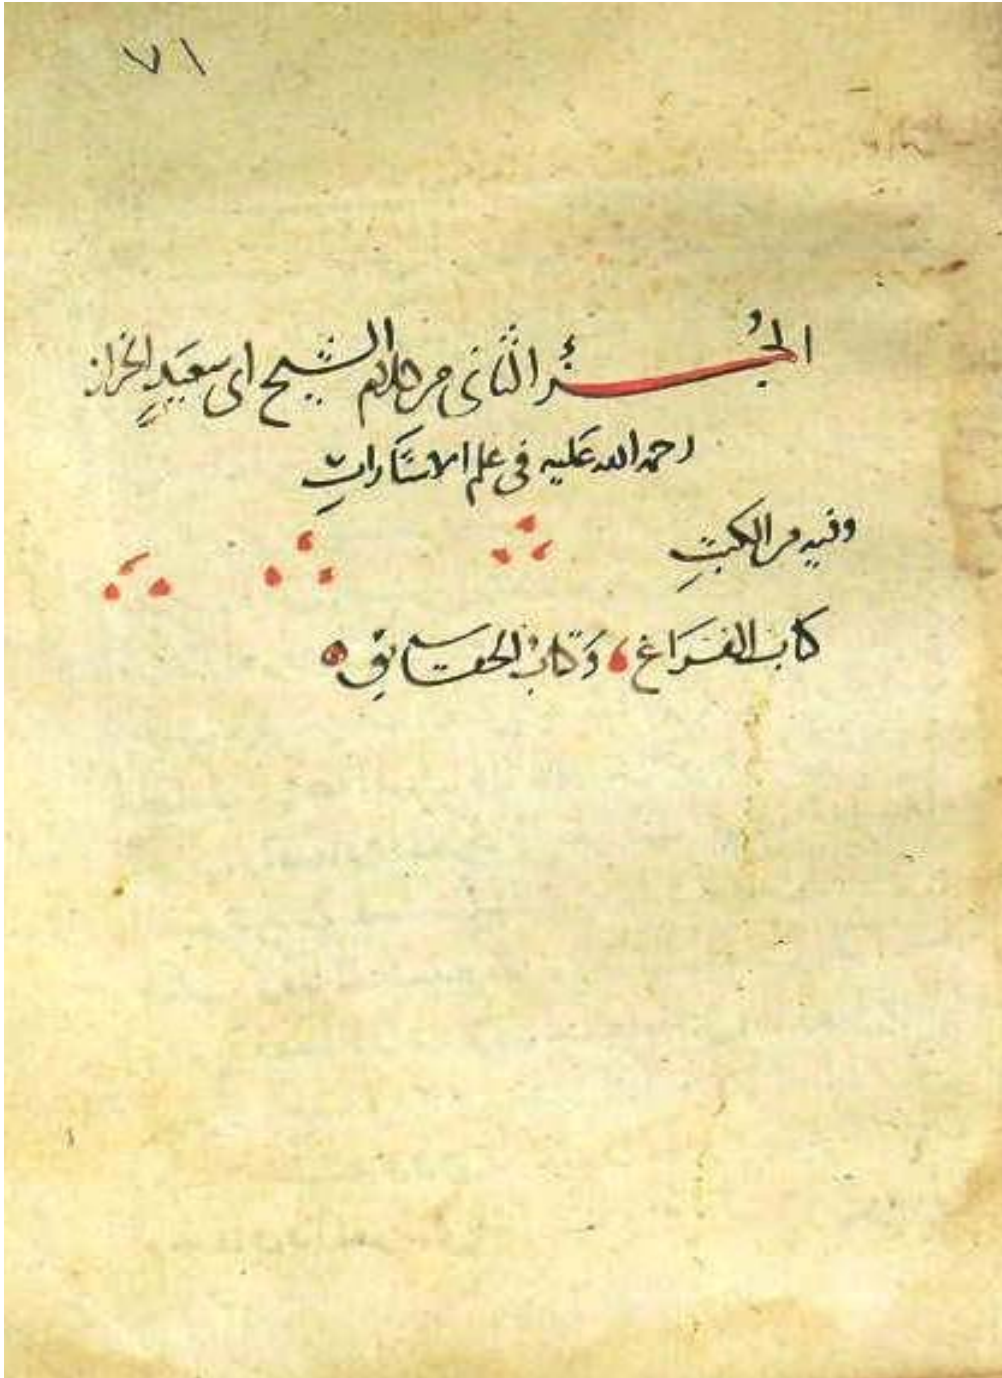 ٧١
الجُزؤ الثانى من كلام الشيخ ابى سعيدٍ الخراز
رحمه الله عليه فى علم الاشاراتِ
وفيه من الكتبِ
كتاب الفَرَاغ، وَكتابُ الحقايقِ ه